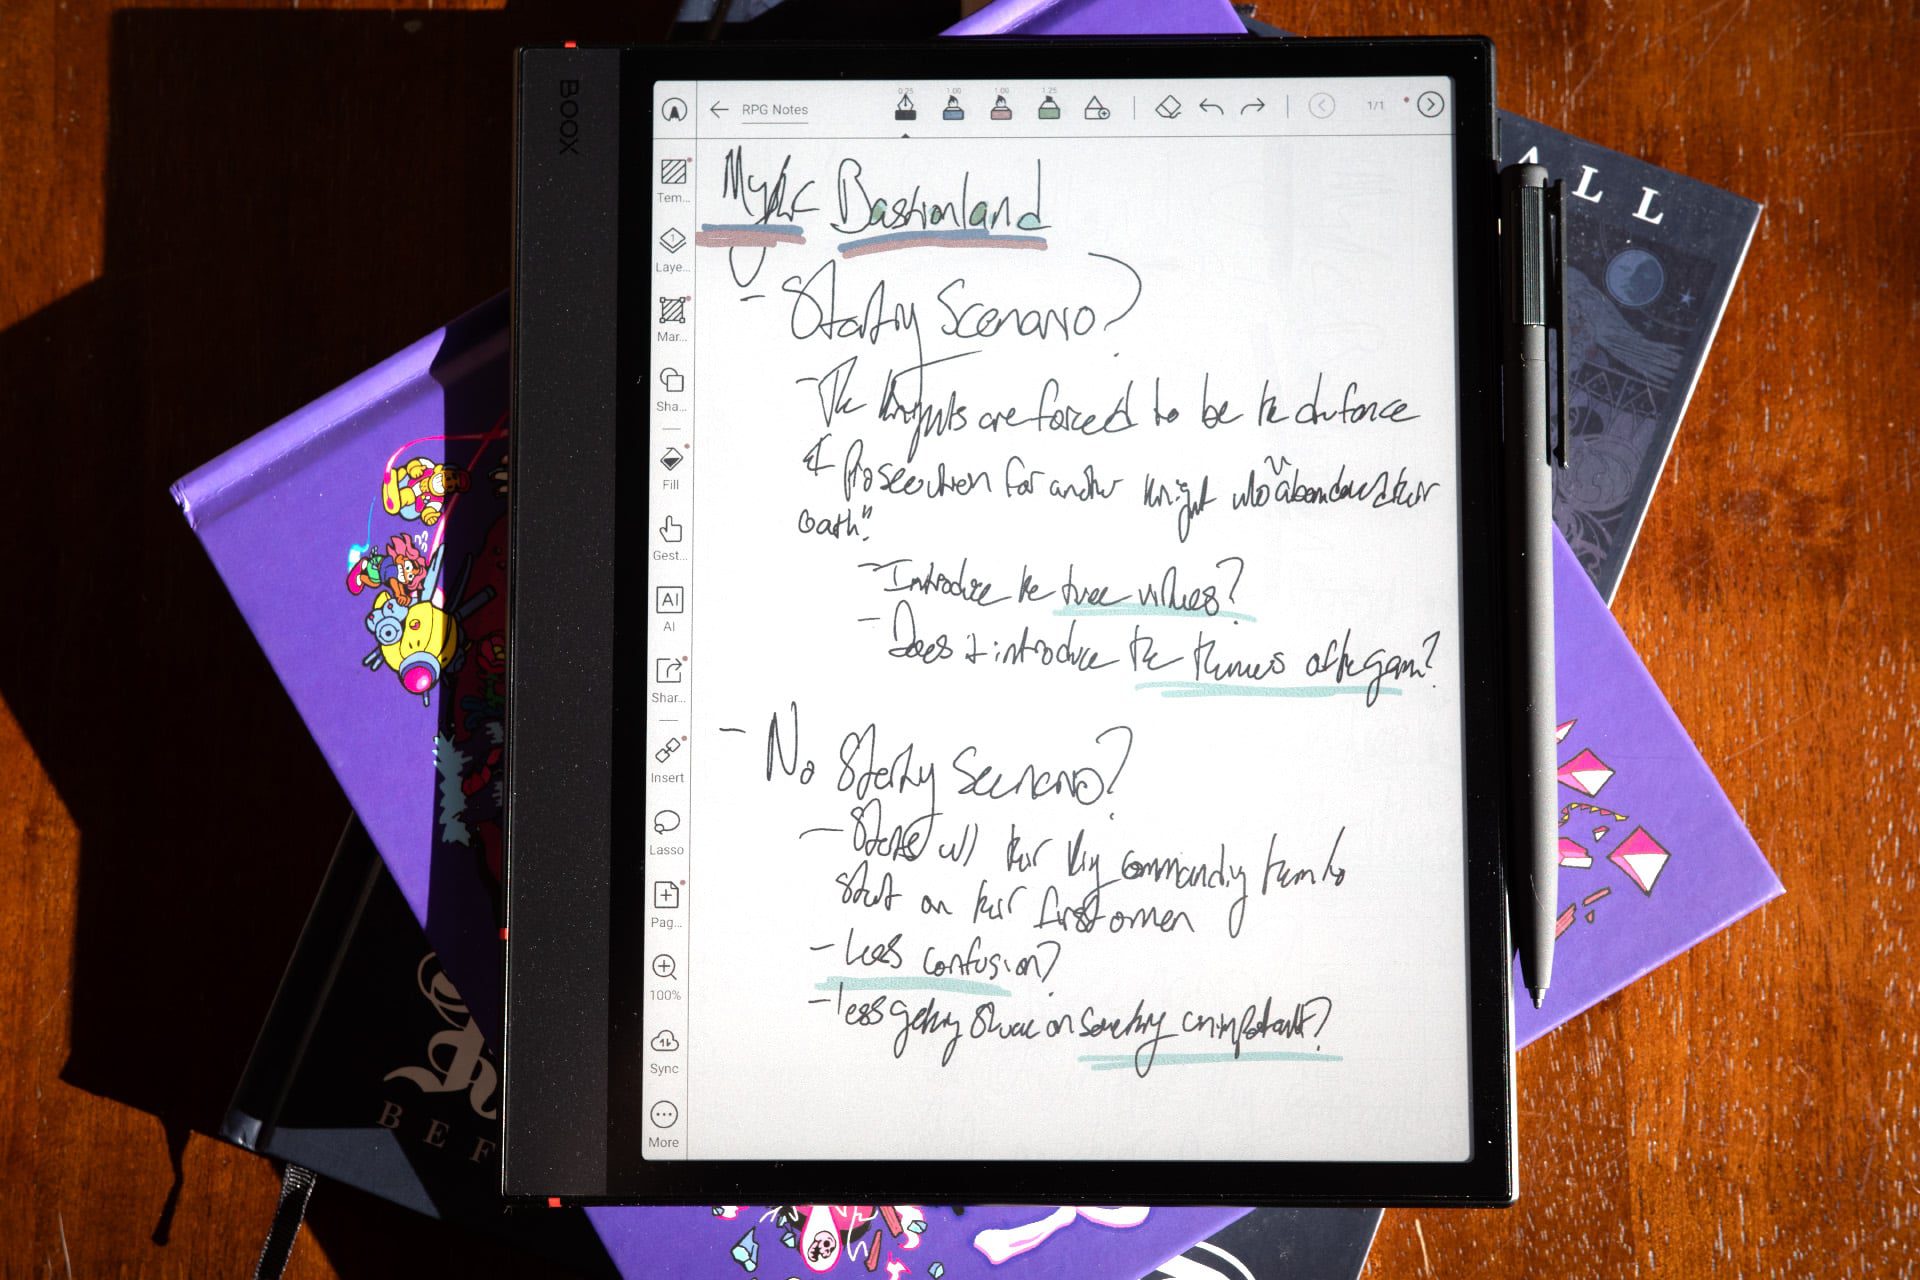 BOOX
RPG Notes
0.25
1.00
1.00
1.25
1/1
Tem...
Laye...
Mar...
Sha...
Fill
Gest...
AI
AI
Shar...
Insert
Lasso
Pag...
100%
Sync
More
Mythic Bastionland
- Starting Scenario?
- The Knights are forced to be the defence
& Prosecution for another Knight who "abandoned their
oath".
- Introduce the three virtues?
- Does it introduce the themes of the game?
- No Starting Scenario?
- Starts w/ their King commanding them to
start on their first omen
- Less confusion?
- less getting stuck on something unimportant?
ALL
BEF